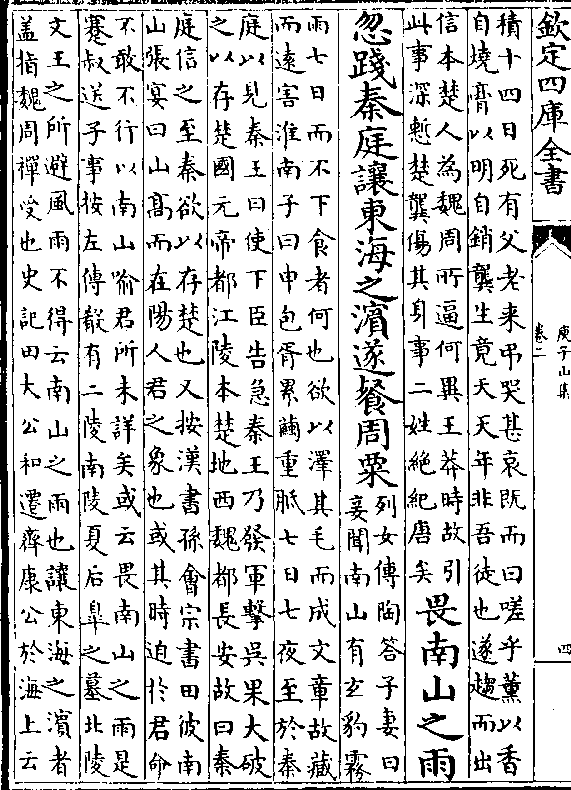 欽定四庫全書
庾子山集
卷二
四
積十四日死有父老来弔哭甚哀既而曰嗟乎薰以香
自燒膏以明自銷龔生竟天天年非吾徒也遂趨而出
信本楚人為魏周所逼何異王莽時故引
此事深慙楚龔傷其身事二姓絶紀唐矣
畏南山之雨
忽踐秦庭讓東海之濵遂餐周粟
列女傳陶答子妻曰
妾聞南山有玄豹霧
雨七日而不下食者何也欲以澤其毛而成文章故藏
而遠害淮南子曰申包胥累繭重胝七日七夜至於秦
庭以見秦王曰使下臣告急秦王乃發軍擊吳果大破
之以存楚國元帝都江陵本楚地西魏都長安故曰秦
庭信之至秦欲以存楚也又按漢書孫會宗書田彼南
山張宴曰山高而在陽人君之象也或其時迫於君命
不敢不行以南山喻君所未詳矣或云畏南山之雨是
蹇叔送子事按左傳殽有二陵南陵夏后臯之墓北陵
文王之所避風雨不得云南山之雨也讓東海之濵者
盖指魏周禪受也史記田大公和遷齊康公於海上云